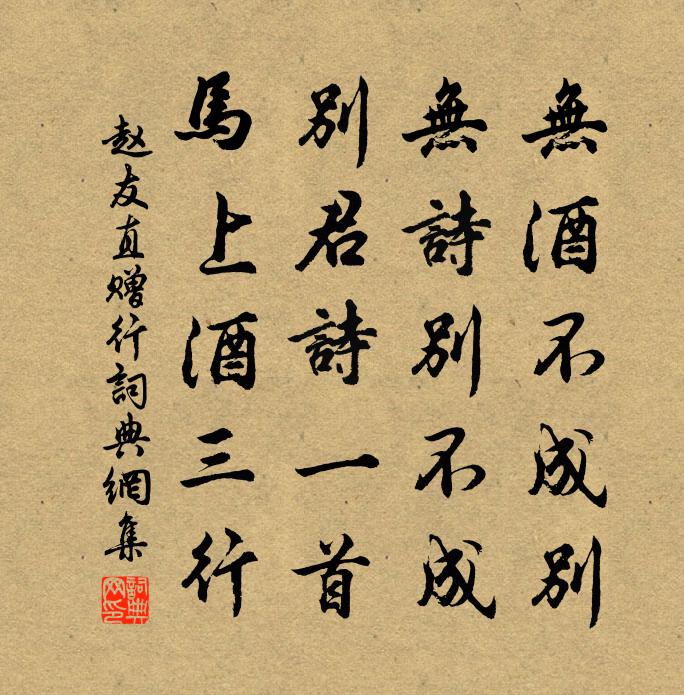 無酒不成別
無詩別不成
別君詩一首
馬上酒三行
赵友直赠行詞典網集
詞典網印